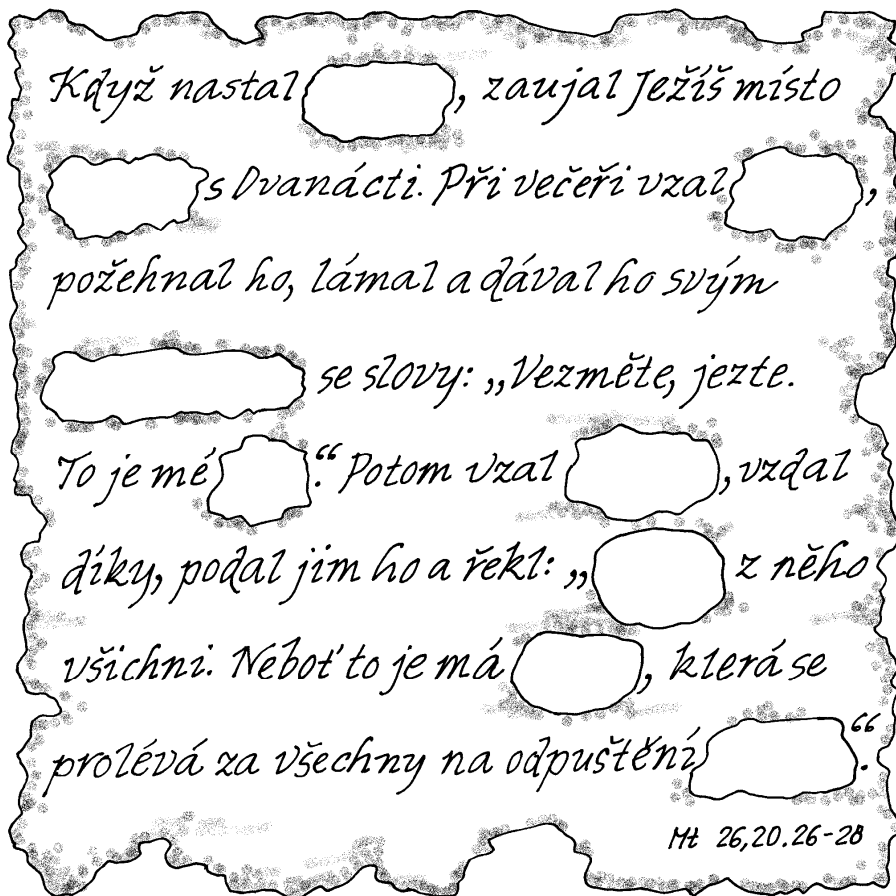 Když nastal , zaujal Ježíš místo
s Dvanácti. Při večeři vzal ,
požehnal ho, lámal a dával ho svým
se slovy: „Vezměte, jezte.
To je mé .“ Potom vzal , vzdal
díky, podal jim ho a řekl: „ z něho
všichni. Neboť to je má , klerá se
prolévá za všechny na odpuštění .“
Mt 26,20.26-28